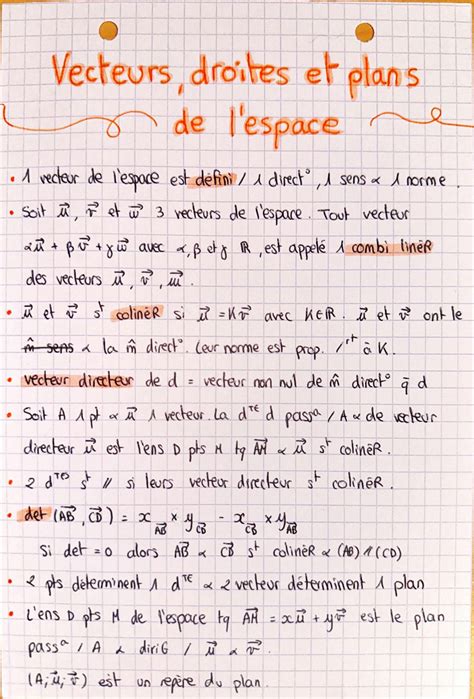 Vecteurs, droites et plans
de l'espace
• 1 vecteur de l'espace est défini / 1 direct°, 1 sens & 1 norme.
• Soit u⃗, v⃗ et w⃗ 3 vecteurs de l'espace. Tout vecteur
αu⃗ + βv⃗ + γw⃗ avec α, β et γ ℝ, est appelé 1 combi linéR
des vecteurs u⃗, v⃗, w⃗.
• u⃗ et v⃗ sᵗ colinéR si u⃗ = Kv⃗ avec K∈ℝ. u⃗ et v⃗ ont le
m̂ sens & la m̂ direct°. Leur norme est prop. /ʳᵗ à K.
• vecteur directeur de d = vecteur non nul de m̂ direct° q̄ d
• Soit A 1 pt & u⃗ 1 vecteur. La dᵀᴱ d passᵃ / A & de vecteur
directeur u⃗ est l'ens D pts M tq AM⃗ & u⃗ sᵗ colinéR.
• 2 dᵀᴱˢ sᵗ // si leurs vecteur directeur sᵗ colinéR.
• det (AB⃗, CD⃗) = x_AB⃗ × y_CD⃗ - x_CD⃗ × y_AB⃗
Si det = 0 alors AB⃗ & CD⃗ sᵗ colinéR & (AB) // (CD)
• 2 pts déterminent 1 dᵀᴱ & 2 vecteur déterminent 1 plan
• L'ens D pts M de l'espace tq AM⃗ = xu⃗ + yv⃗ est le plan
passᵃ / A & diriG / u⃗ & v⃗.
(A; u⃗; v⃗) est un repère du plan.